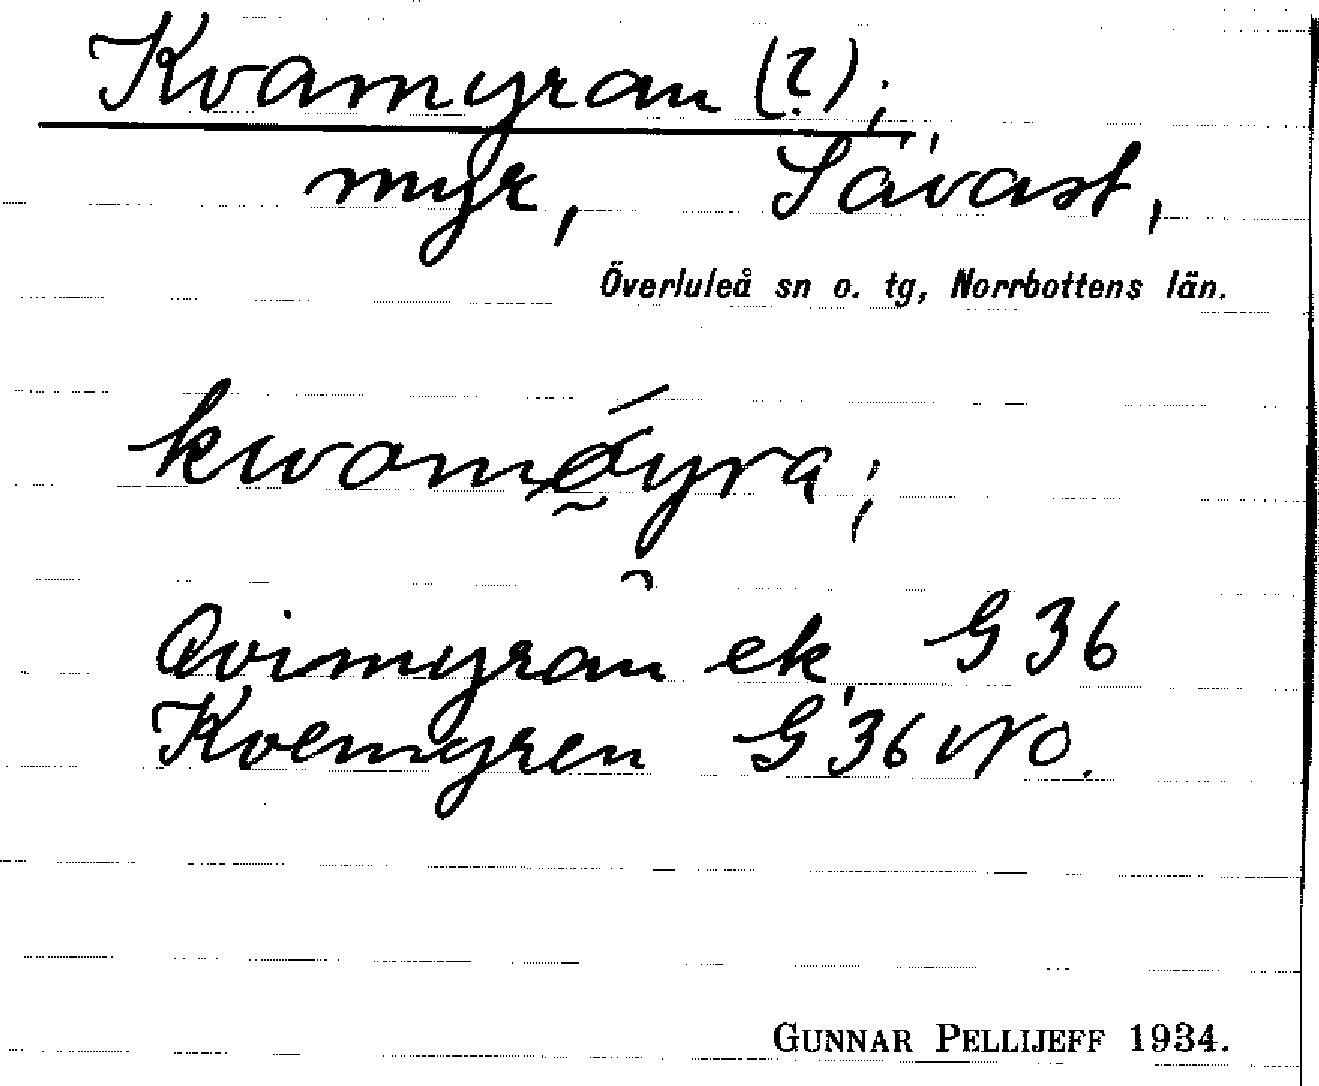 Kvamyran (?);
myr, Sävast,
Överluleå sn o. tg, Norrbottens län.
kwamǿyra;
Qvimyran ek, G 36
Kvemyren G 36 NO.
GUNNAR PELLIJEFF 1934.